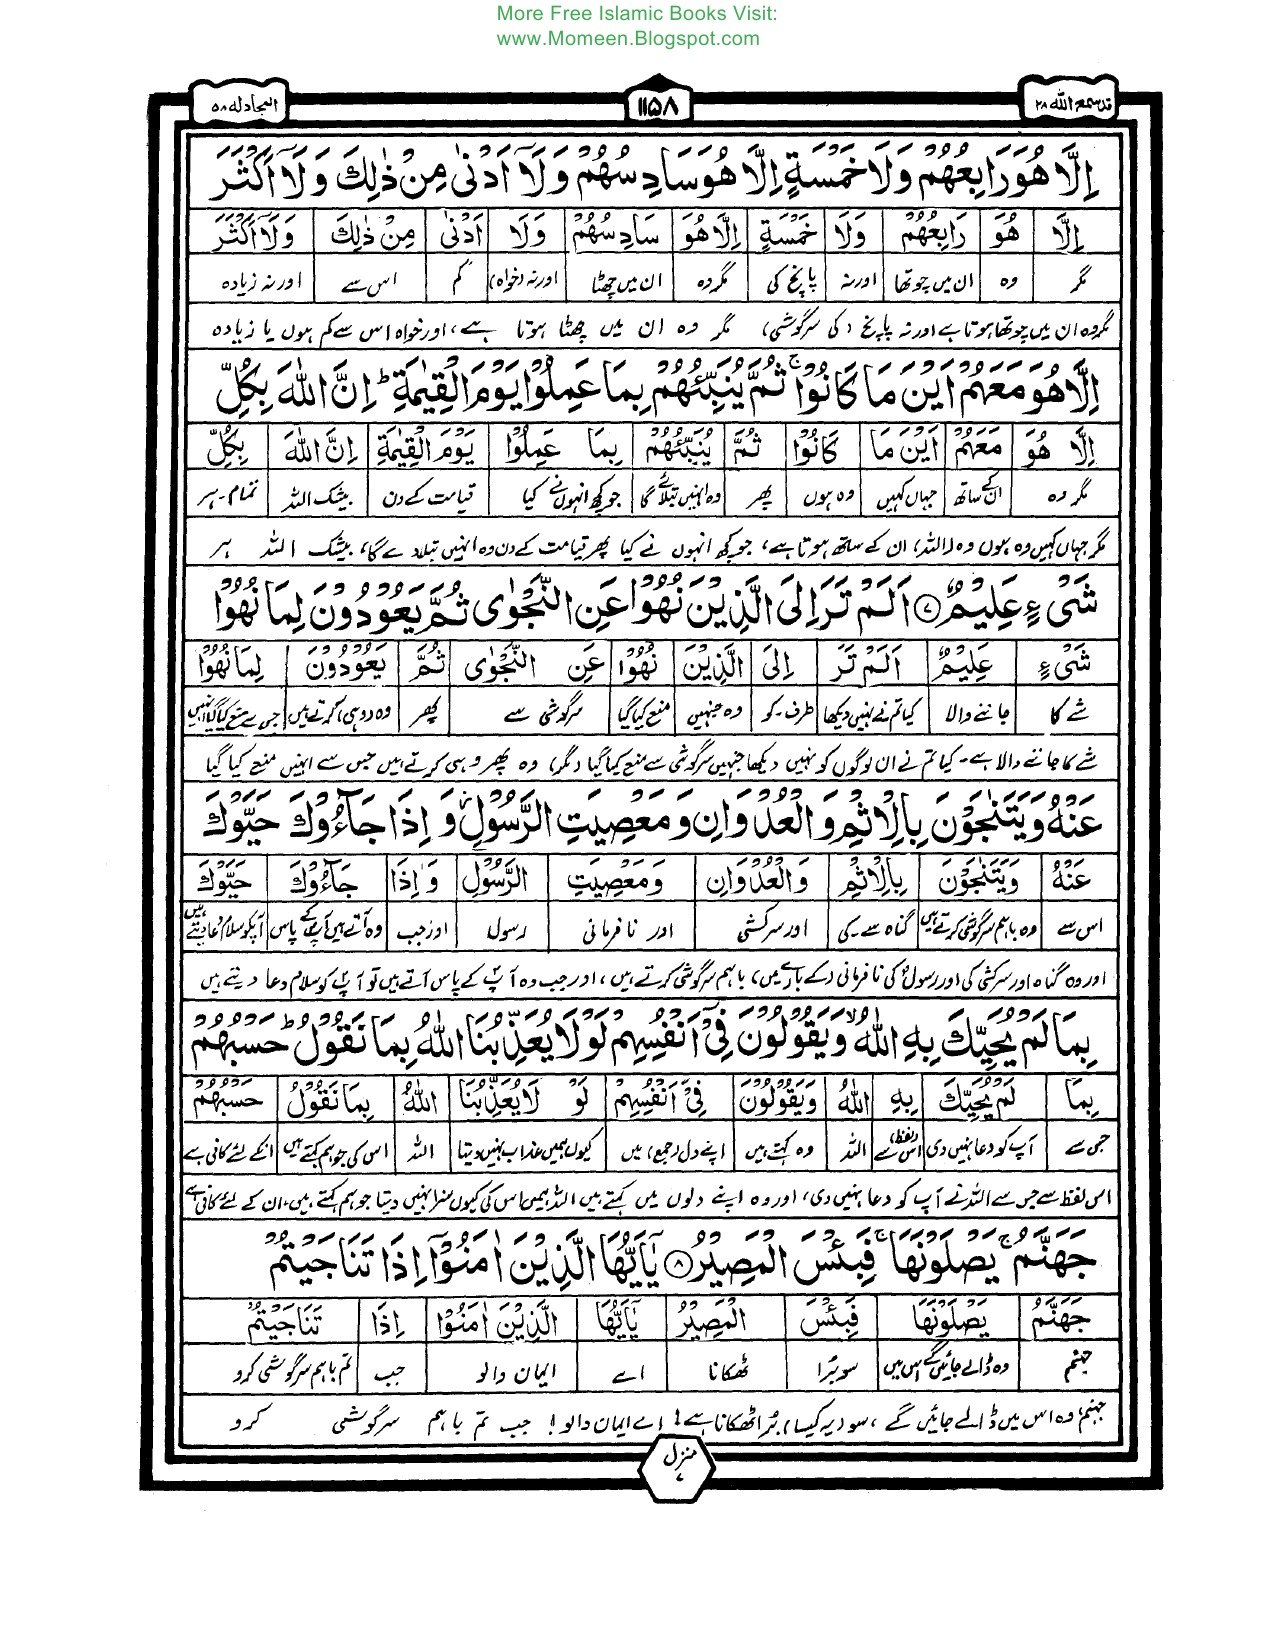 More Free Islamic Books Visit:
www.Momeen.Blogspot.com
قد سمع اللہ ۲۸ ۱۱۵۸ المجادلہ ۵۸
اِلَّا هُوَ رَابِعُهُمْ وَلَا خَمْسَةٍ اِلَّا هُوَ سَادِسُهُمْ وَلَآ اَدْنٰى مِنْ ذٰلِكَ وَلَآ اَكْثَرَ
اِلَّا هُوَ رَابِعُهُمْ وَلَا خَمْسَةٍ اِلَّا هُوَ سَادِسُهُمْ وَلَا اَدْنٰى مِنْ ذٰلِكَ وَلَآ اَكْثَرَ
مگر وہ ان میں چوتھا اور نہ پانچ کی مگر وہ ان میں چھٹا اور نہ (خواہ) کم اس سے اور نہ زیادہ
مگر وہ ان میں چوتھا ہوتا ہے اور نہ پانچ (کی سرگوشی) مگر وہ ان میں چھٹا ہوتا ہے، اور خواہ اس سے کم ہوں یا زیادہ
اِلَّا هُوَ مَعَهُمْ اَيْنَ مَا كَانُوْا ۚ ثُمَّ يُنَبِّئُهُمْ بِمَا عَمِلُوْا يَوْمَ الْقِيٰمَةِ ؕ اِنَّ اللّٰهَ بِكُلِّ
اِلَّا هُوَ مَعَهُمْ اَيْنَ مَا كَانُوْا ثُمَّ يُنَبِّئُهُمْ بِمَا عَمِلُوْا يَوْمَ الْقِيٰمَةِ اِنَّ اللّٰهَ بِكُلِّ
مگر وہ ان کے ساتھ جہاں کہیں وہ ہوں پھر وہ انہیں بتلائے گا جو کچھ انہوں نے کیا قیامت کے دن بیشک اللہ تمام۔ہر
مگر جہاں کہیں وہ ہوں وہ (اللہ) ان کے ساتھ ہوتا ہے، جو کچھ انہوں نے کیا پھر قیامت کے دن وہ انہیں بتلا دے گا، بیشک اللہ ہر
شَيْءٍ عَلِيْمٌ ۝۷ اَلَمْ تَرَ اِلَى الَّذِيْنَ نُهُوْا عَنِ النَّجْوٰى ثُمَّ يَعُوْدُوْنَ لِمَا نُهُوْا
شَيْءٍ عَلِيْمٌ اَلَمْ تَرَ اِلَى الَّذِيْنَ نُهُوْا عَنِ النَّجْوٰى ثُمَّ يَعُوْدُوْنَ لِمَا نُهُوْا
شے کا جاننے والا کیا تم نے نہیں دیکھا طرف۔کو وہ جنہیں منع کیا گیا سرگوشی سے پھر وہ (وہی) کرتے ہیں جس سے منع کیا گیا انہیں
شے کا جاننے والا ہے۔ کیا تم نے ان لوگوں کو نہیں دیکھا جنہیں سرگوشی سے منع کیا گیا (مگر) وہ پھر وہی کرتے ہیں جس سے انہیں منع کیا گیا
عَنْهُ وَيَتَنٰجَوْنَ بِالْاِثْمِ وَالْعُدْوَانِ وَمَعْصِيَتِ الرَّسُوْلِ ؗ وَاِذَا جَآءُوْكَ حَيَّوْكَ
عَنْهُ وَيَتَنٰجَوْنَ بِالْاِثْمِ وَالْعُدْوَانِ وَمَعْصِيَتِ الرَّسُوْلِ وَاِذَا جَآءُوْكَ حَيَّوْكَ
اس سے وہ باہم سرگوشی کرتے ہیں گناہ سے۔کی اور سرکشی اور نافرمانی رسول اور جب وہ آتے ہیں آپ کے پاس آپکو سلام دعا دیتے ہیں
اور وہ گناہ اور سرکشی کی اور رسولؐ کی نافرمانی (کے بارے میں) باہم سرگوشی کرتے ہیں، اور جب وہ آپؐ کے پاس آتے ہیں تو آپؐ کو سلام دعا دیتے ہیں
بِمَا لَمْ يُحَيِّكَ بِهِ اللّٰهُ ۙ وَيَقُوْلُوْنَ فِيْٓ اَنْفُسِهِمْ لَوْلَا يُعَذِّبُنَا اللّٰهُ بِمَا نَقُوْلُ ؕ حَسْبُهُمْ
بِمَا لَمْ يُحَيِّكَ بِهِ اللّٰهُ وَيَقُوْلُوْنَ فِيْٓ اَنْفُسِهِمْ لَوْ لَا يُعَذِّبُنَا اللّٰهُ بِمَا نَقُوْلُ حَسْبُهُمْ
جس سے آپ کو دعا نہیں دی اس (لفظ) سے اللہ وہ کہتے ہیں اپنے دل (جمع) میں کیوں ہمیں عذاب نہیں دیتا اللہ اس کی جو ہم کہتے ہیں انکے لئے کافی ہے
اس لفظ سے جس سے اللہ نے آپ کو دعا نہیں دی، اور وہ اپنے دلوں میں کہتے ہیں اللہ ہمیں اس کی کیوں سزا نہیں دیتا جو ہم کہتے ہیں، ان کے لئے کافی ہے
جَهَنَّمُ ۚ يَصْلَوْنَهَا ۚ فَبِئْسَ الْمَصِيْرُ ۝۸ يٰٓاَيُّهَا الَّذِيْنَ اٰمَنُوْٓا اِذَا تَنَاجَيْتُمْ
جَهَنَّمُ يَصْلَوْنَهَا فَبِئْسَ الْمَصِيْرُ يٰٓاَيُّهَا الَّذِيْنَ اٰمَنُوْٓا اِذَا تَنَاجَيْتُمْ
جہنم وہ ڈالے جائیں گے اس میں سو بُرا ٹھکانا اے ایمان والو جب تم باہم سرگوشی کرو
جہنم، وہ اس میں ڈالے جائیں گے، سو (یہ کیسا) بُرا ٹھکانا ہے! اے ایمان والو! جب تم باہم سرگوشی کرو
منزل ۷